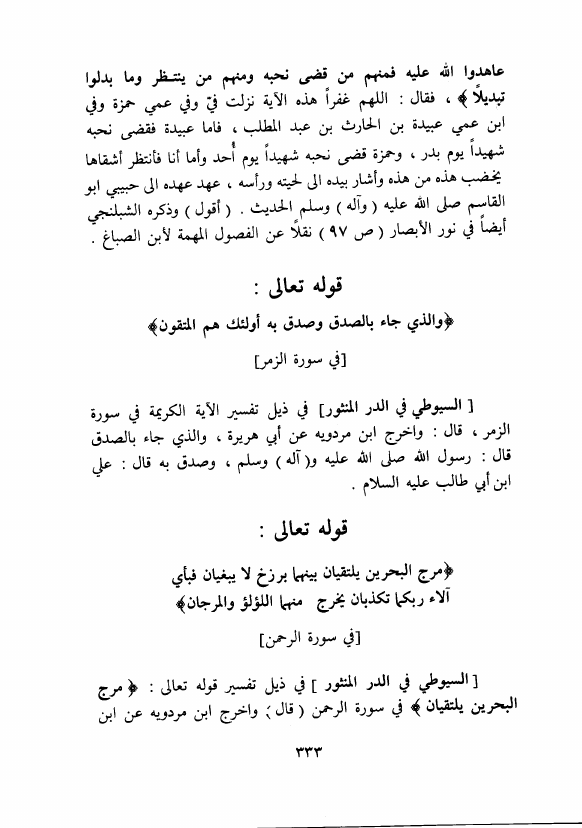 عاهدوا الله عليه فمنهم من قضى نحبه ومنهم من ينتـظر وما بدلوا
تبديلاً ﴾ ، فقال : اللهم غفراً هذه الآية نزلت فيّ وفي عمي حمزة وفي
ابن عمي عبيدة بن الحارث بن عبد المطلب ، فاما عبيدة فقضى نحبه
شهيداً يوم بدر ، وحمزة قضى نحبه شهيداً يوم أُحد وأما أنا فأنتظر أشقاها
يخضب هذه من هذه وأشار بيده الى لحيته ورأسه ، عهد عهده الى حبيبي ابو
القاسم صلى الله عليه ( وآله ) وسلم الحديث . ( أقول ) وذكره الشبلنجي
أيضاً في نور الأبصار ( ص ٩٧ ) نقلاً عن الفصول المهمة لأبن الصباغ .
قوله تعالى :
﴿والذي جاء بالصدق وصدق به أولئك هم المتقون﴾
[في سورة الزمر]
[ السيوطي في الدر المنثور] في ذيل تفسير الآية الكريمة في سورة
الزمر ، قال : واخرج ابن مردويه عن أبي هريرة ، والذي جاء بالصدق
قال : رسول الله صلى الله عليه و( آله ) وسلم ، وصدق به قال : علي
ابن أبي طالب عليه السلام .
قوله تعالى :
﴿مرج البحرين يلتقيان بينهما برزخ لا يبغيان فبأي
آلاء ربكما تكذبان يخرج منهما اللؤلؤ والمرجان﴾
[في سورة الرحمن]
[ السيوطي في الدر المنثور ] في ذيل تفسير قوله تعالى : ﴿ مرج
البحرين يلتقيان ﴾ في سورة الرحمن ( قال : واخرج ابن مردويه عن ابن
٣٣٣